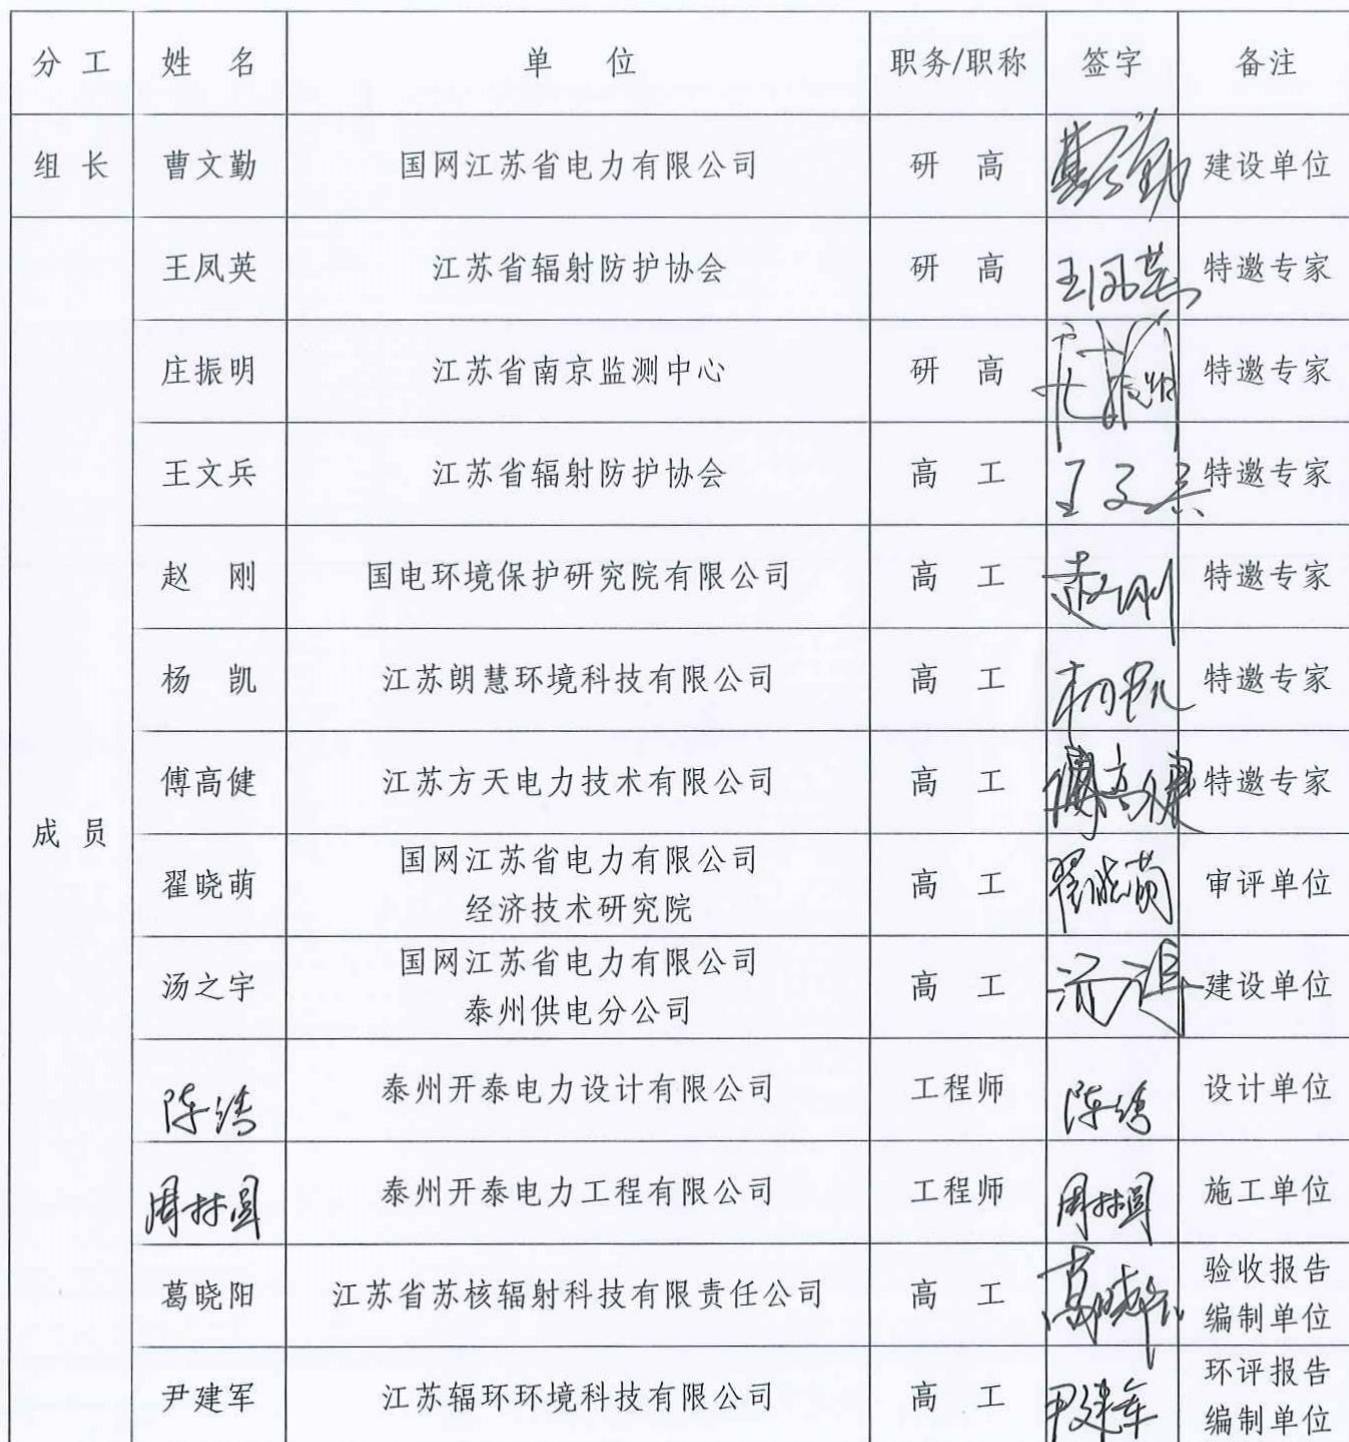 分工 姓名 单位 职务/职称 签字 备注
组长 曹文勤 国网江苏省电力有限公司 研高 曹文勤 建设单位
王凤英 江苏省辐射防护协会 研高 王凤英 特邀专家
庄振明 江苏省南京监测中心 研高 庄振明 特邀专家
王文兵 江苏省辐射防护协会 高工 王文兵 特邀专家
赵刚 国电环境保护研究院有限公司 高工 赵刚 特邀专家
杨凯 江苏朗慧环境科技有限公司 高工 杨凯 特邀专家
傅高健 江苏方天电力技术有限公司 高工 傅高健 特邀专家
成员
翟晓萌 国网江苏省电力有限公司
经济技术研究院 高工 翟晓萌 审评单位
汤之宇 国网江苏省电力有限公司
泰州供电分公司 高工 建设单位
泰州开泰电力设计有限公司 工程师 设计单位
周林圆 泰州开泰电力工程有限公司 工程师 周林圆 施工单位
葛晓阳 江苏省苏核辐射科技有限责任公司 高工 葛晓阳 验收报告
编制单位
尹建军 江苏辐环环境科技有限公司 高工 尹建军 环评报告
编制单位